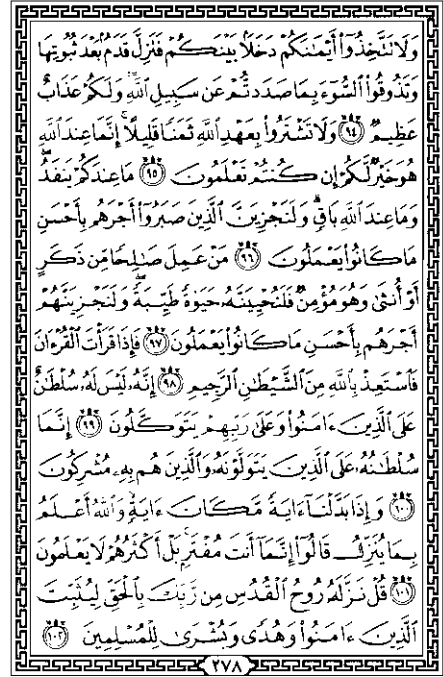 وَلَا تَتَّخِذُوٓا۟ أَيْمَـٰنَكُمْ دَخَلًۢا بَيْنَكُمْ فَتَزِلَّ قَدَمٌۢ بَعْدَ ثُبُوتِهَا
وَتَذُوقُوا۟ ٱلسُّوٓءَ بِمَا صَدَدتُّمْ عَن سَبِيلِ ٱللَّهِ ۖ وَلَكُمْ عَذَابٌ
عَظِيمٌ ﴿٩٤﴾ وَلَا تَشْتَرُوا۟ بِعَهْدِ ٱللَّهِ ثَمَنًا قَلِيلًا ۚ إِنَّمَا عِندَ ٱللَّهِ
هُوَ خَيْرٌ لَّكُمْ إِن كُنتُمْ تَعْلَمُونَ ﴿٩٥﴾ مَا عِندَكُمْ يَنفَدُ ۖ
وَمَا عِندَ ٱللَّهِ بَاقٍ ۗ وَلَنَجْزِيَنَّ ٱلَّذِينَ صَبَرُوٓا۟ أَجْرَهُم بِأَحْسَنِ
مَا كَانُوا۟ يَعْمَلُونَ ﴿٩٦﴾ مَنْ عَمِلَ صَـٰلِحًا مِّن ذَكَرٍ
أَوْ أُنثَىٰ وَهُوَ مُؤْمِنٌ فَلَنُحْيِيَنَّهُۥ حَيَوٰةً طَيِّبَةً ۖ وَلَنَجْزِيَنَّهُمْ
أَجْرَهُم بِأَحْسَنِ مَا كَانُوا۟ يَعْمَلُونَ ﴿٩٧﴾ فَإِذَا قَرَأْتَ ٱلْقُرْءَانَ
فَٱسْتَعِذْ بِٱللَّهِ مِنَ ٱلشَّيْطَـٰنِ ٱلرَّجِيمِ ﴿٩٨﴾ إِنَّهُۥ لَيْسَ لَهُۥ سُلْطَـٰنٌ
عَلَى ٱلَّذِينَ ءَامَنُوا۟ وَعَلَىٰ رَبِّهِمْ يَتَوَكَّلُونَ ﴿٩٩﴾ إِنَّمَا
سُلْطَـٰنُهُۥ عَلَى ٱلَّذِينَ يَتَوَلَّوْنَهُۥ وَٱلَّذِينَ هُم بِهِۦ مُشْرِكُونَ
﴿١٠٠﴾ وَإِذَا بَدَّلْنَآ ءَايَةً مَّكَانَ ءَايَةٍ ۙ وَٱللَّهُ أَعْلَمُ
بِمَا يُنَزِّلُ قَالُوٓا۟ إِنَّمَآ أَنتَ مُفْتَرٍۭ ۚ بَلْ أَكْثَرُهُمْ لَا يَعْلَمُونَ
﴿١٠١﴾ قُلْ نَزَّلَهُۥ رُوحُ ٱلْقُدُسِ مِن رَّبِّكَ بِٱلْحَقِّ لِيُثَبِّتَ
ٱلَّذِينَ ءَامَنُوا۟ وَهُدًى وَبُشْرَىٰ لِلْمُسْلِمِينَ ﴿١٠٢﴾
٢٧٨